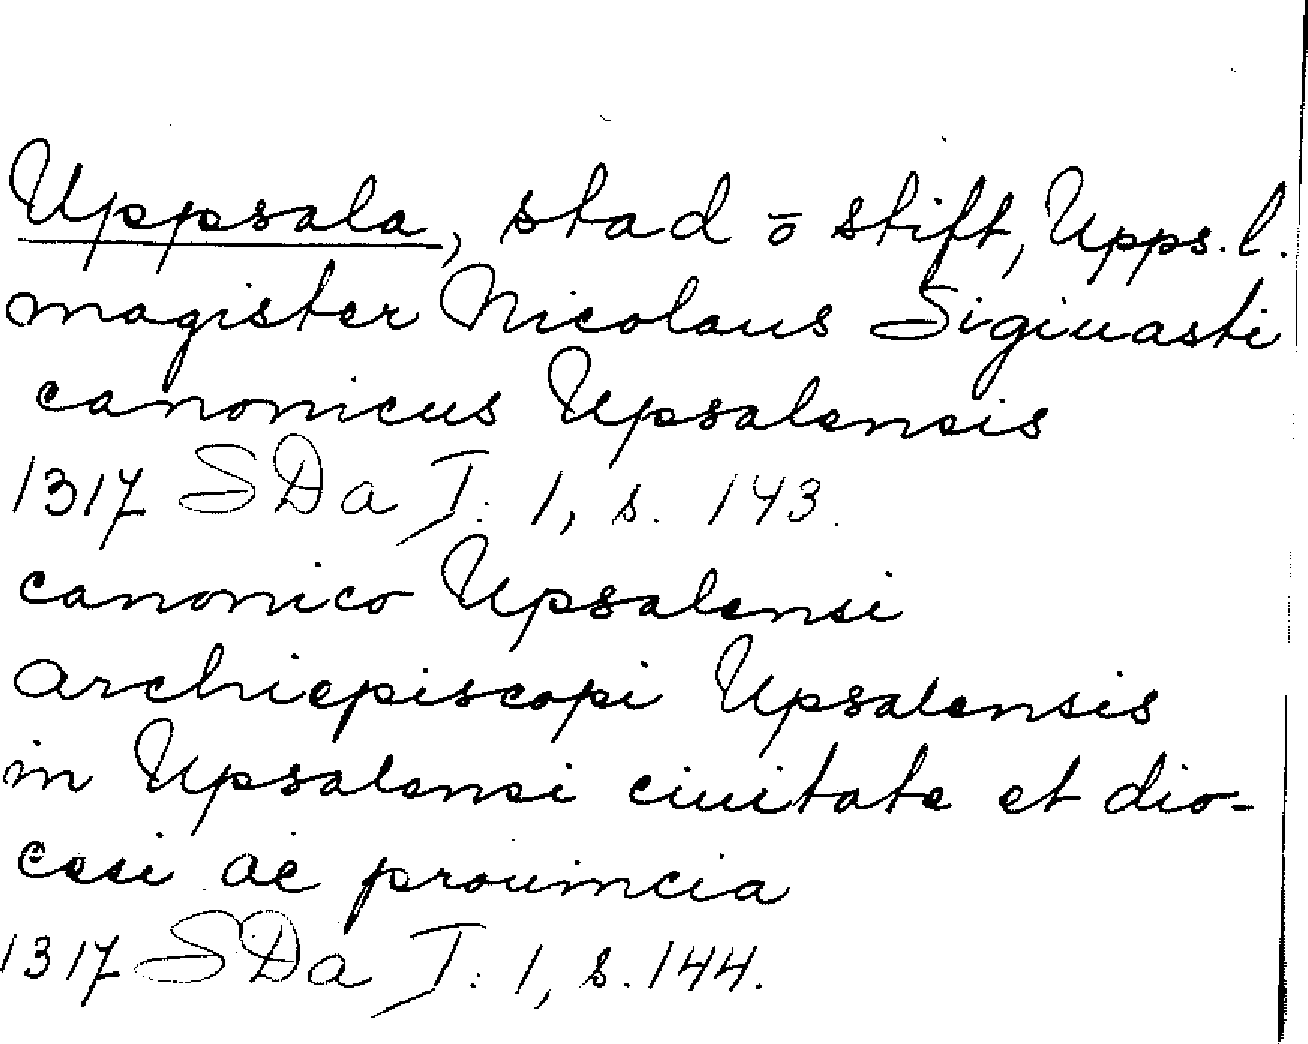 Uppsala, stad o̅ stift, Upps. l.
magister Nicolaus Sigiuasti
canonicus Upsalensis
1317 SDa I: 1, s. 143.
canonico Upsalensi
archiepiscopi Upsalensis
in Upsalensi ciuitate et dio-
cesi ac prouincia
1317 SDa I: 1, s. 144.